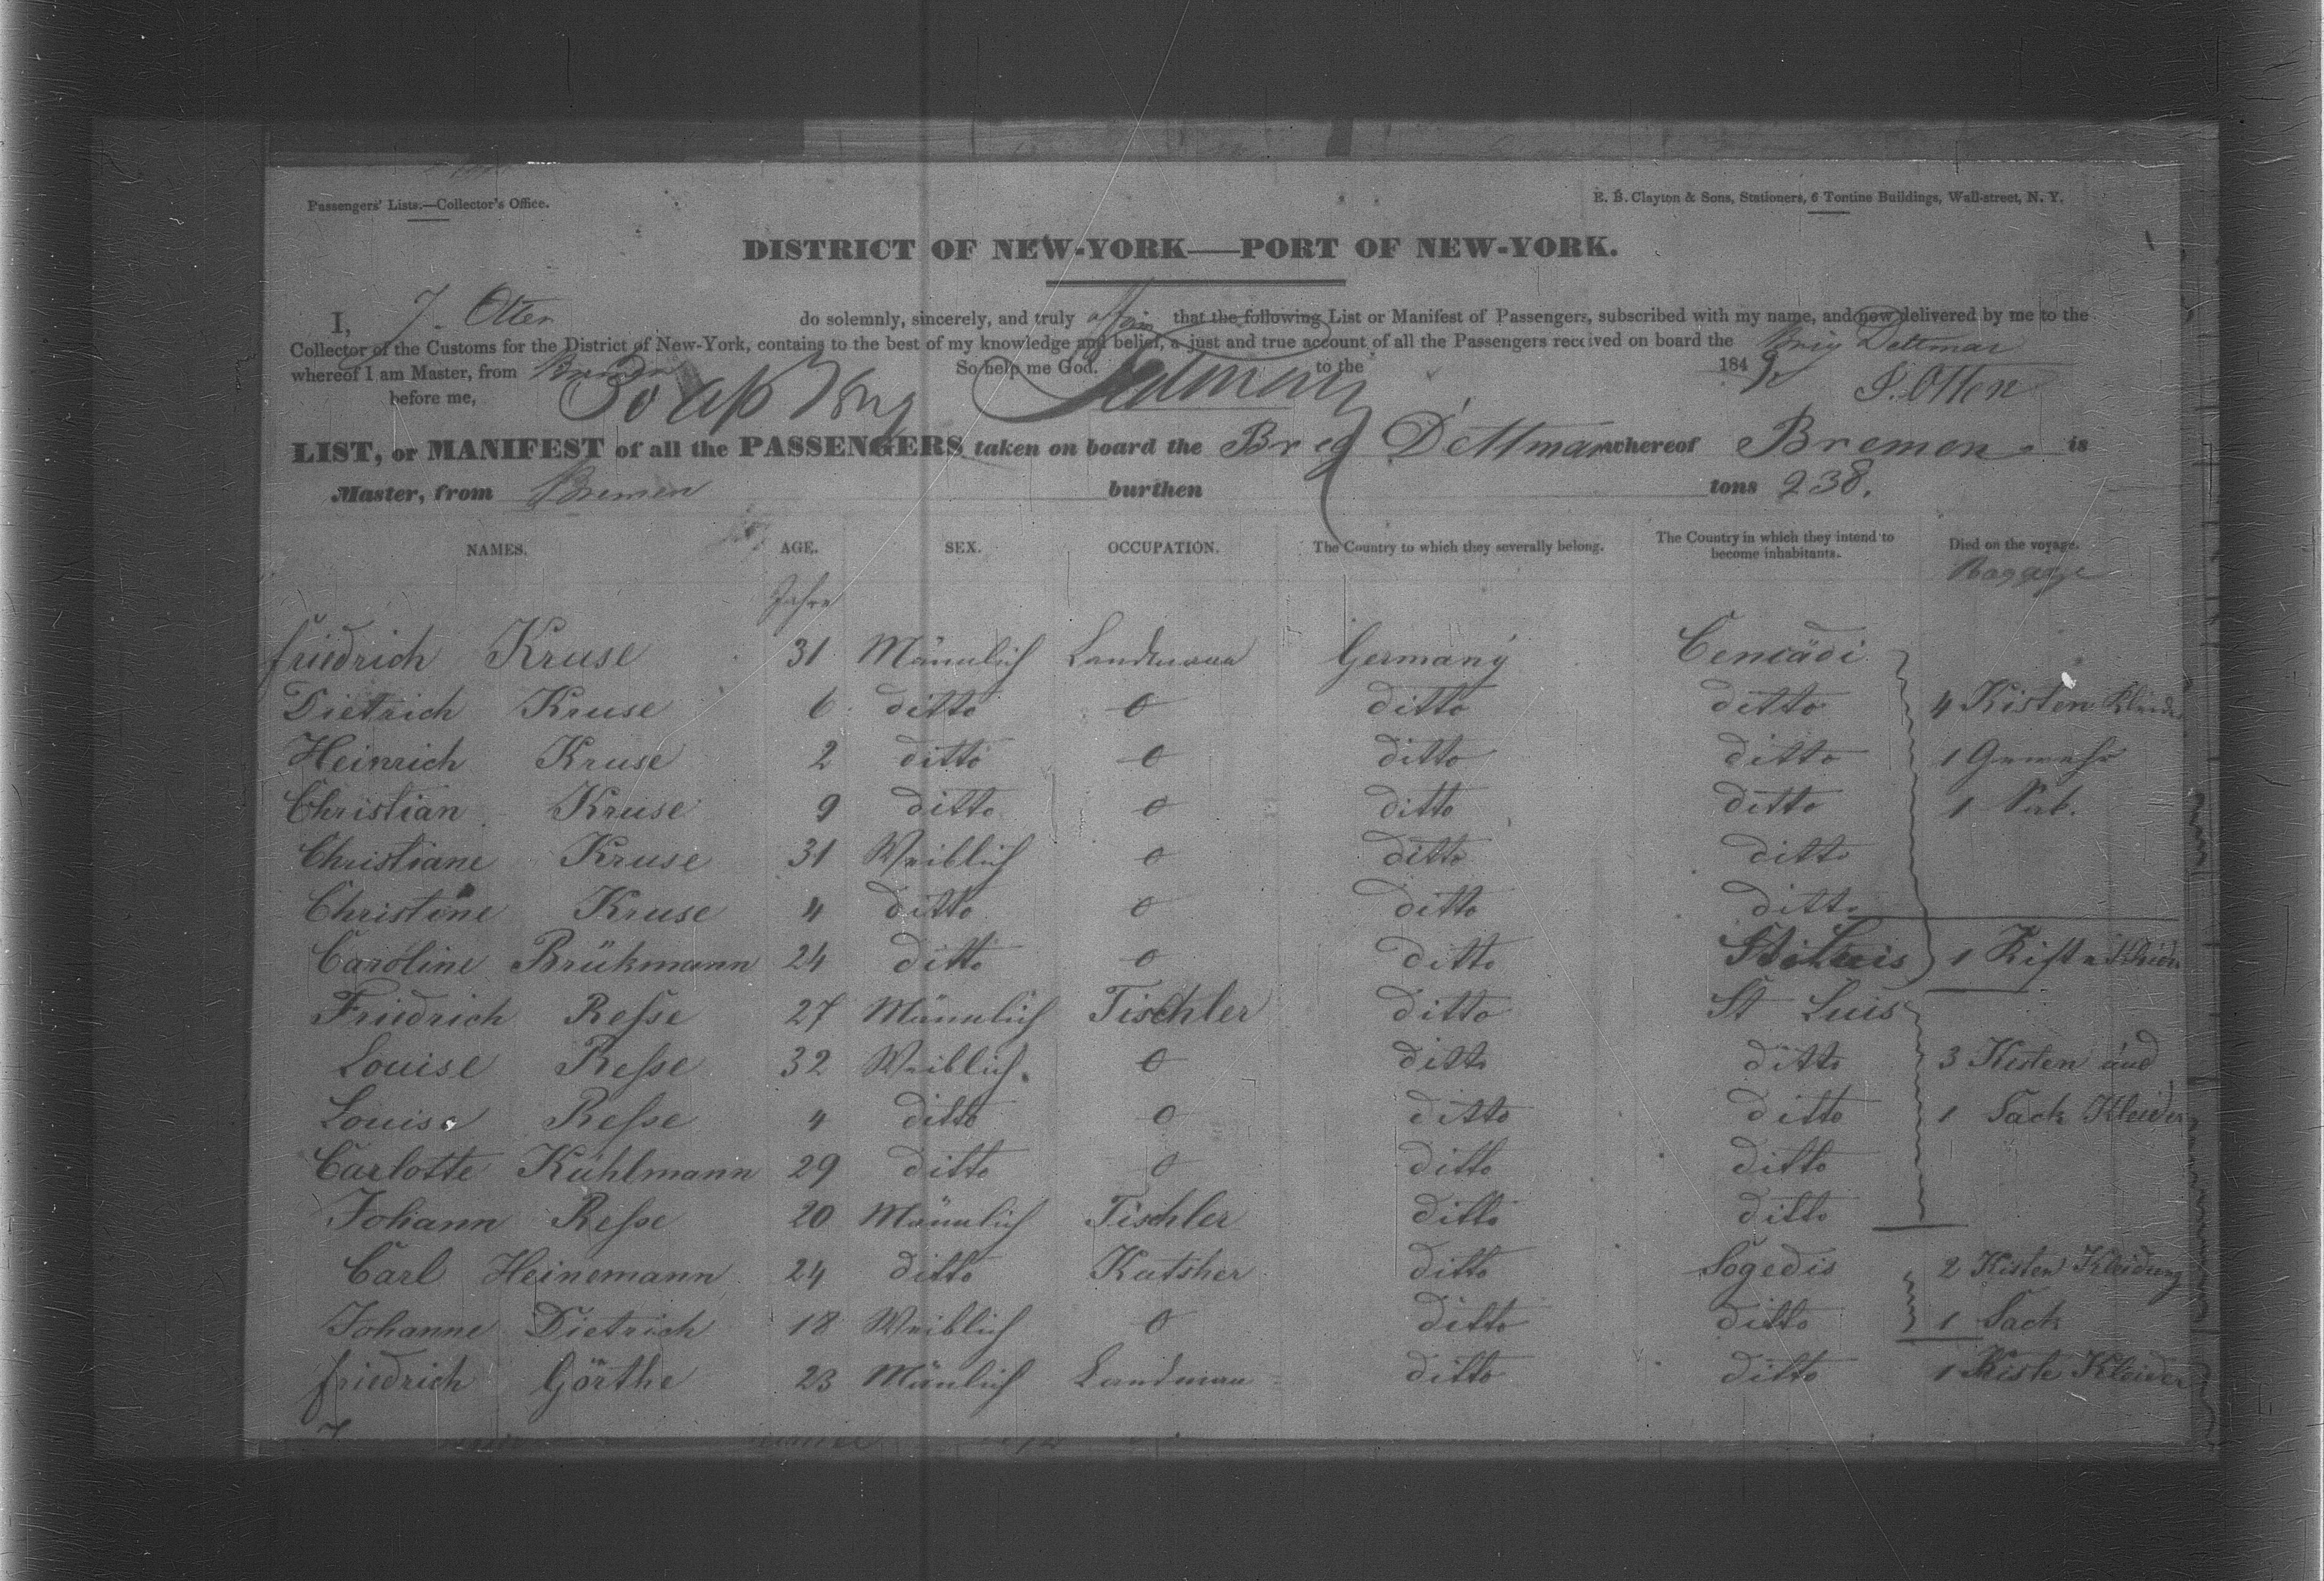 Passengers' Lists.—Collector's Office.
E. B. Clayton & Sons, Stationers, 6 Tontine Buildings, Wall-street, N. Y.
DISTRICT OF NEW-YORK—PORT OF NEW-YORK.
I, J. Otten do solemnly, sincerely, and truly affirm that the following List or Manifest of Passengers, subscribed with my name, and now delivered by me to the
Collector of the Customs for the District of New-York, contains to the best of my knowledge and belief, a just and true account of all the Passengers received on board the Brig Dettmar
whereof I am Master, from Bremen So help me God. to the 184
before me, J. Otten
LIST, or MANIFEST of all the PASSENGERS taken on board the Breg Dettmar whereof Bremen is
Master, from Bremen burthen tons 238.
NAMES. AGE. SEX. OCCUPATION. The Country to which they severally belong. The Country in which they intend to become inhabitants. Died on the voyage.
Jahre Baggage
Friedrich Kruse 31 Männlich Landmann Germany
Dietrich Kruse 6 ditto 0 ditto ditto 4 Kisten Kleider
Heinrich Kruse 2 ditto 0 ditto ditto 1 Gewehr
Christian Kruse 9 ditto 0 ditto ditto 1
Christiane Kruse 31 Weiblich 0 ditto ditto
Christine Kruse 4 ditto 0 ditto ditto
Caroline Brükmann 24 ditto 0 ditto St Luis 1 Kiste Kleider
Friedrich Reſse 27 Männlich Tischler ditto St Luis
Louise Reſse 32 Weiblich 0 ditto ditto 3 Kisten und
Louise Reſse 4 ditto 0 ditto ditto 1 Sack Kleider
Carlotte Kuhlmann 29 ditto 0 ditto ditto
Johann Reſse 20 Männlich Tischler ditto ditto
Carl Heinemann 24 ditto Kutsher ditto Sogedis 2 Kisten Kleidung
Johanne Dietrich 18 Weiblich 0 ditto ditto 1 Sack
Friedrich Görthe 23 Mänlich Landman ditto ditto 1 Kiste Kleider